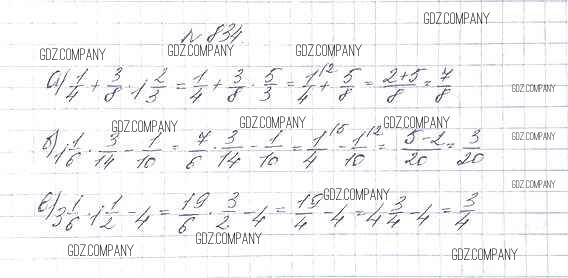 GDZ.COMPANY
№ 834.
GDZ.COMPANY GDZ.COMPANY GDZ.COMPANY
а) 1/4 + 3/8 · 1 2/3 = 1/4 + 3/8 · 5/3 = 1/4 \2 + 5/8 = (2+5)/8 = 7/8
GDZ.COMPANY
GDZ.COMPANY GDZ.COMPANY GDZ.COMPANY
б) 1 1/6 · 3/14 - 1/10 = 7/6 · 3/14 - 1/10 = 1/4 \5 - 1/10 \2 = (5-2)/20 = 3/20
GDZ.COMPANY
GDZ.COMPANY
GDZ.COMPANY
в) 3 1/6 · 1 1/2 - 4 = 19/6 · 3/2 - 4 = 19/4 - 4 = 4 3/4 - 4 = 3/4
GDZ.COMPANY
GDZ.COMPANY GDZ.COMPANY